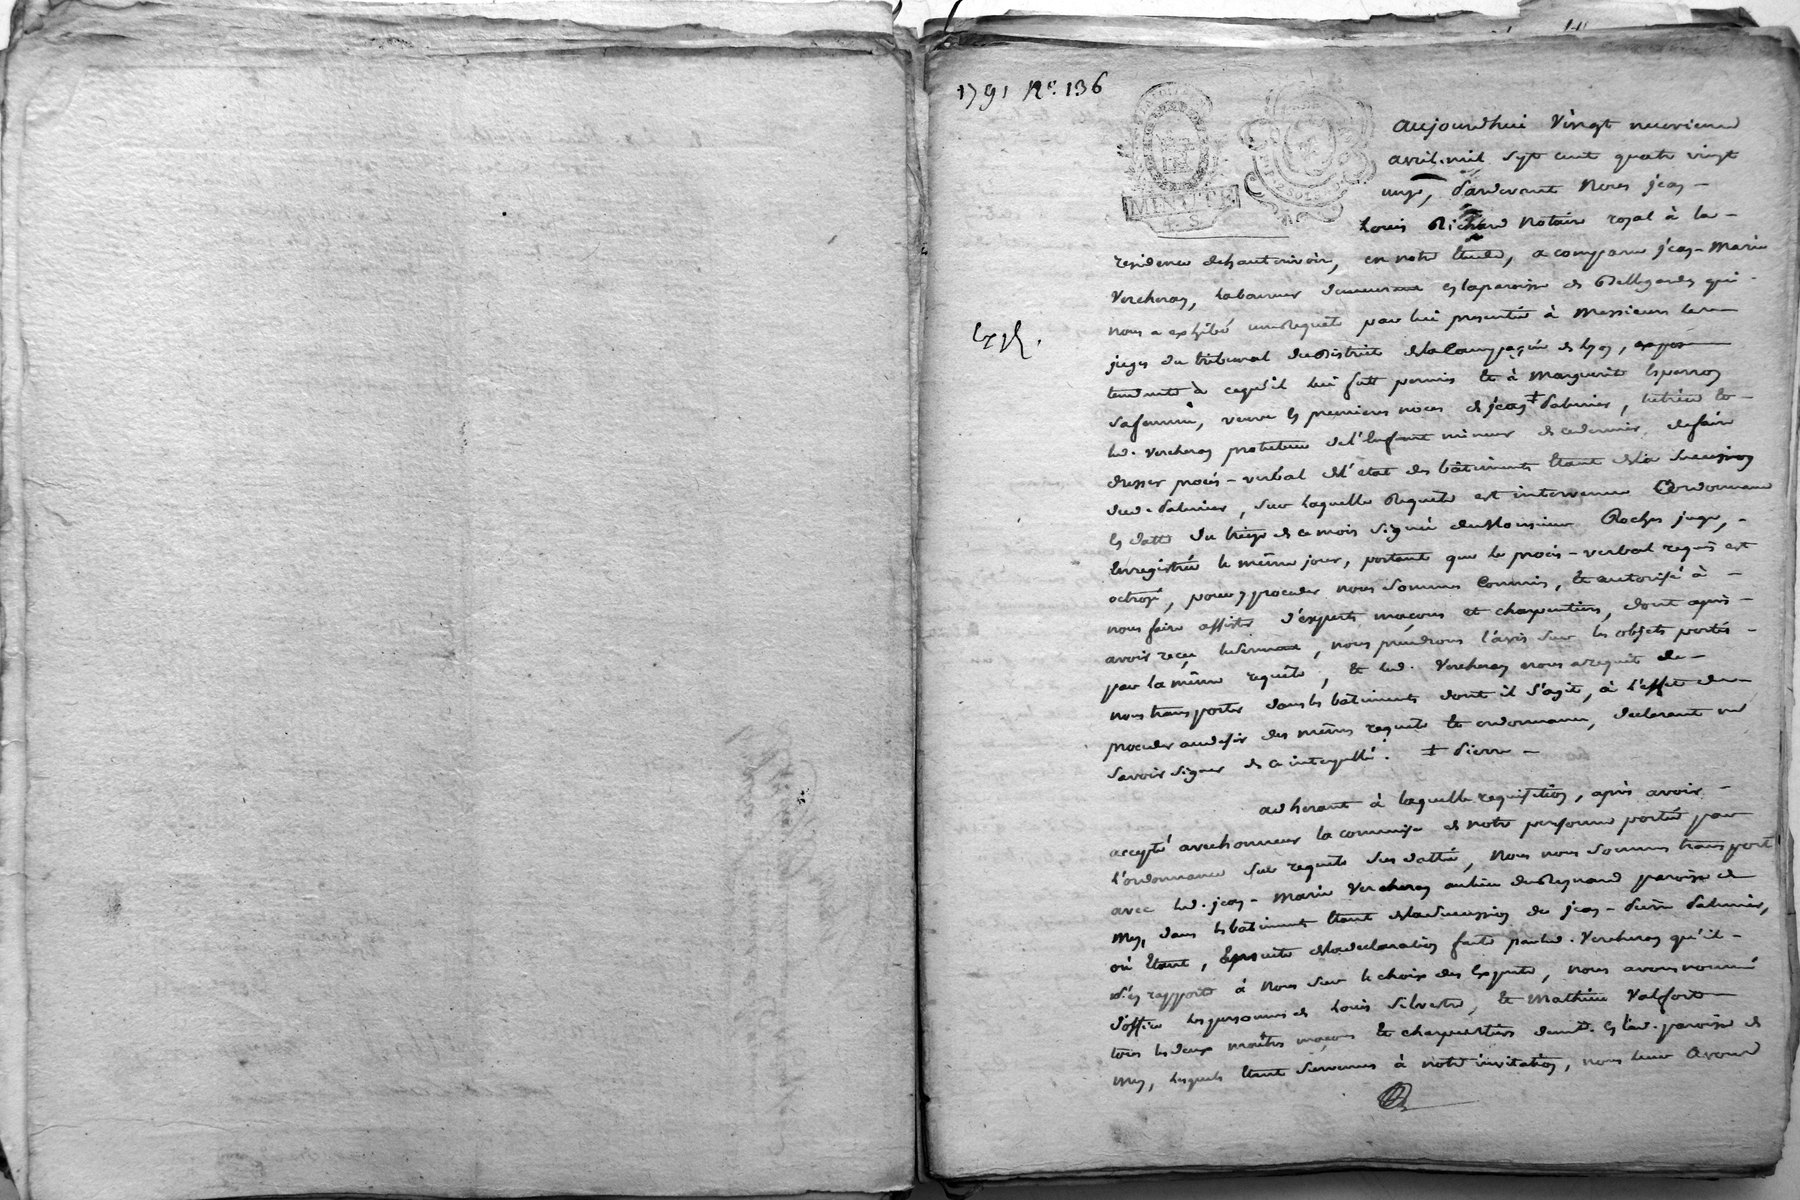 1791 No. 136
MINUTE
4. S.
aujourdhui vingt neuvieme
avril mil sept cent quatre vingt
onze, pardevant Nous jean
Louis Richard Notaire royal à la
residence de hauterivoire, en notre Etude, a comparu jean-Marie
Vercheray, laboureur demeurant en la paroisse de Bellegarde qui
nous a exhibé une Requete par lui presentée à Messieurs les
juges du tribunal du District de la Campagne de lyon,
tendante à ce qu'il lui fut permis et à Marguerite Esparron
sa femme, veuve en premieres noces de jean ‡ Palmier,
led. Vercheray protuteur de l'Enfant mineur de ce dernier, de faire
dresser procès-verbal de l'etat des bâtiments Etant de la Succession
dud. Palmier, sur laquelle Requete est intervenue Ordonnance
en datte du treize de ce mois signée de Monsieur Rochas juge,
Enregistrée le même jour, portant que le procès-verbal requis est
octroyé, pour y proceder nous sommes Commis, et autorisé à
nous faire assister d'experts maçons et charpentiers, dont après
avoir reçu le serment, nous prendrons l'avis sur les objets portés
par la même requête, Et led. Vercheray nous a requit de
nous transporter dans les bâtiments dont il s'agit, à l'effet de
proceder au desir des mêmes requete Et ordonnance, declarant ne
savoir signer de ce interpellé. ‡ Pierre
adherant à laquelle requisition, après avoir
accepté avec honneur la commise de notre personne portée par
l'ordonnance sur requete sus dattée, Nous nous sommes transporté
avec led. jean-Marie Vercheray au lieu du Reynard paroisse de
Mey, dans les bâtiments Etant de la Succession de jean-Pierre Palmier,
où Etant, Ensuite de la declaration faite par led. Vercheray qu'il
s'en rapporte à Nous sur le choix des Experts, nous avons nommé
d'office les personnes de Louis Silvestre, Et Mathieu Valfort
tous les deux maitres maçons Et charpentiers demt. en lad. paroisse de
Mey, lesquels Etant survenus à notre invitation, nous leur avons